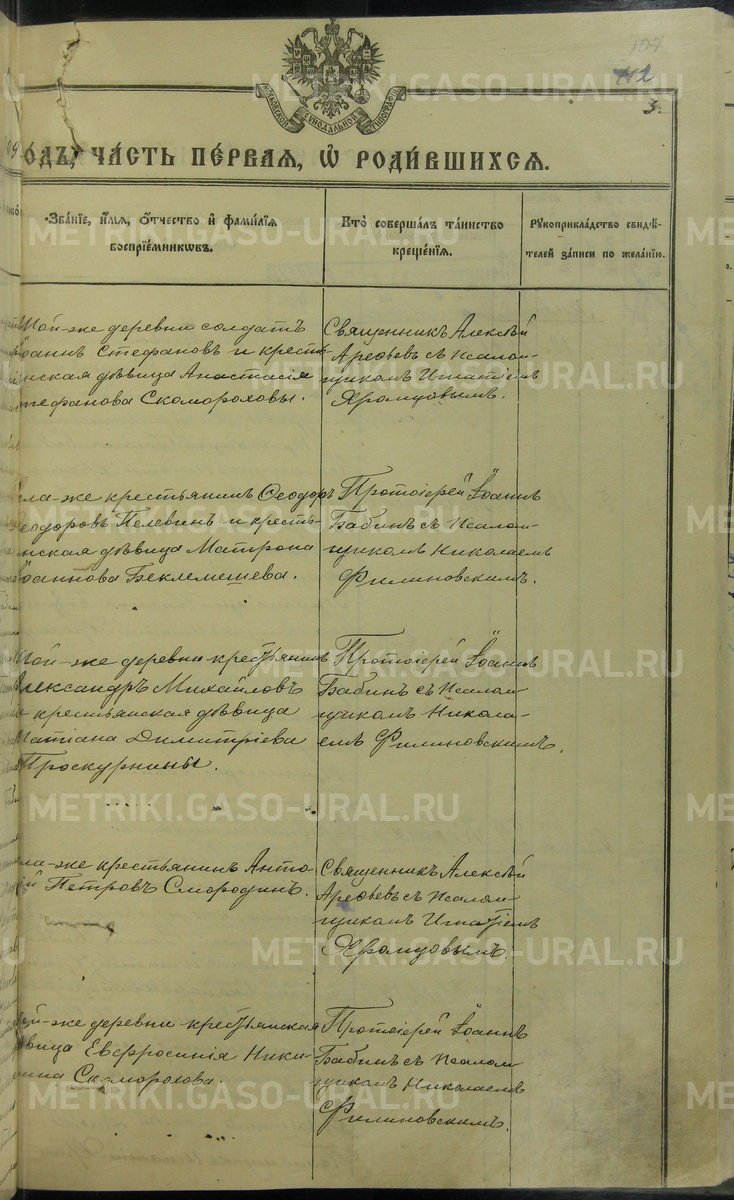 107
112
3.
МОСКОВСКОЙ СѴНОДАЛЬНОЙ ТИПОГРАФІИ
ОДЪ, ЧАСТЬ ПЕРВАЯ, Ѡ РОДИВШИХСЯ.
Званіе, имя, отчество и фамилія воспріемниковъ.
Кто совершалъ таинство крещенія.
Рукоприкладство свидѣтелей записи по желанію.
той-же деревни солдатъ
Іоаннъ Стефановъ и кресть-
янская дѣвица Анастасія
Стефанова Скомороховы.
Священникъ Алексѣй
Арефьевъ съ псалом-
щикомъ Игнатіемъ
села-же крестьянинъ Ѳеодоръ
Ѳеодоровъ Пелевинъ и кресть-
янская дѣвица Матрона
Іоаннова Беклемешева.
Протоіерей Іоаннъ
Бабинъ съ псалом-
щикомъ Николаемъ
Филиновскимъ.
Той-же деревни крестьянинъ
Александръ Михайловъ
и крестьянская дѣвица
Татіана Димитріева
Проскурнины.
Протоіерей Іоаннъ
Бабинъ съ псалом-
щикомъ Никола-
емъ Филиновскимъ.
села-же крестьянинъ Анто-
ній Петровъ Смородинъ.
Священникъ Алексѣй
Арефьевъ съ псалом-
щикомъ Игнатіемъ
той-же деревни крестьянская
дѣвица Евфросинія Ники-
тина Скоморохова.
Протоіерей Іоаннъ
Бабинъ съ псалом-
щикомъ Николаемъ
Филиновскимъ.
METRIKI.GASO-URAL.RU